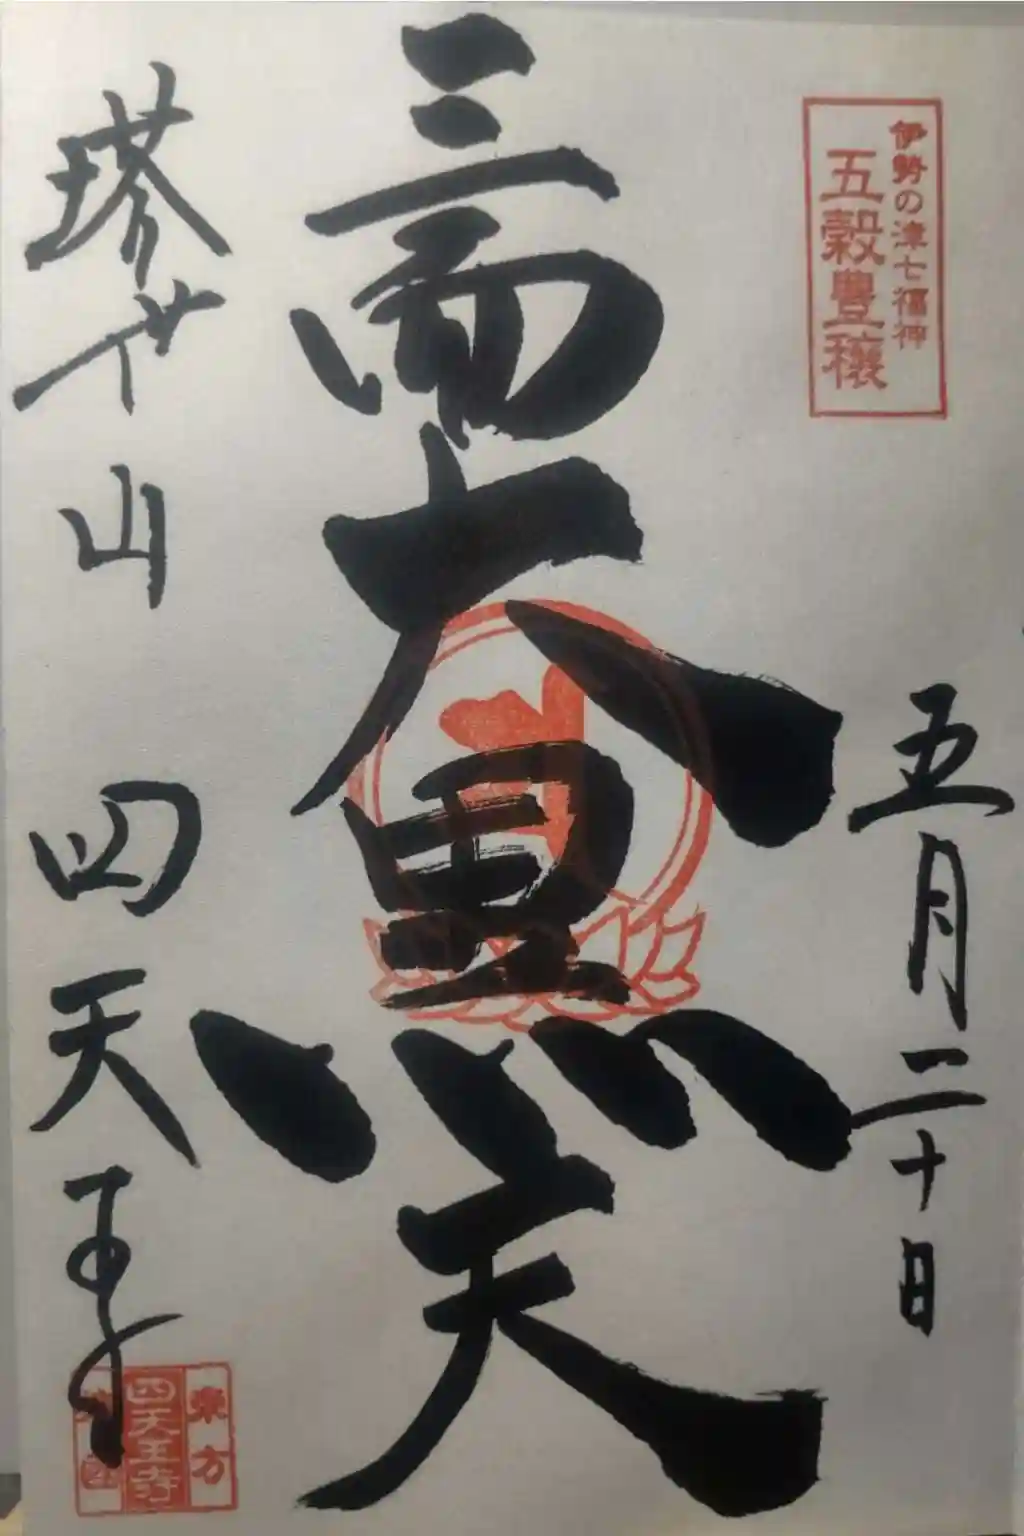 伊勢の津七福神
五穀豊穣
五月二十日
三面大黒天
塔世山 四天王寺
東方
四天王寺